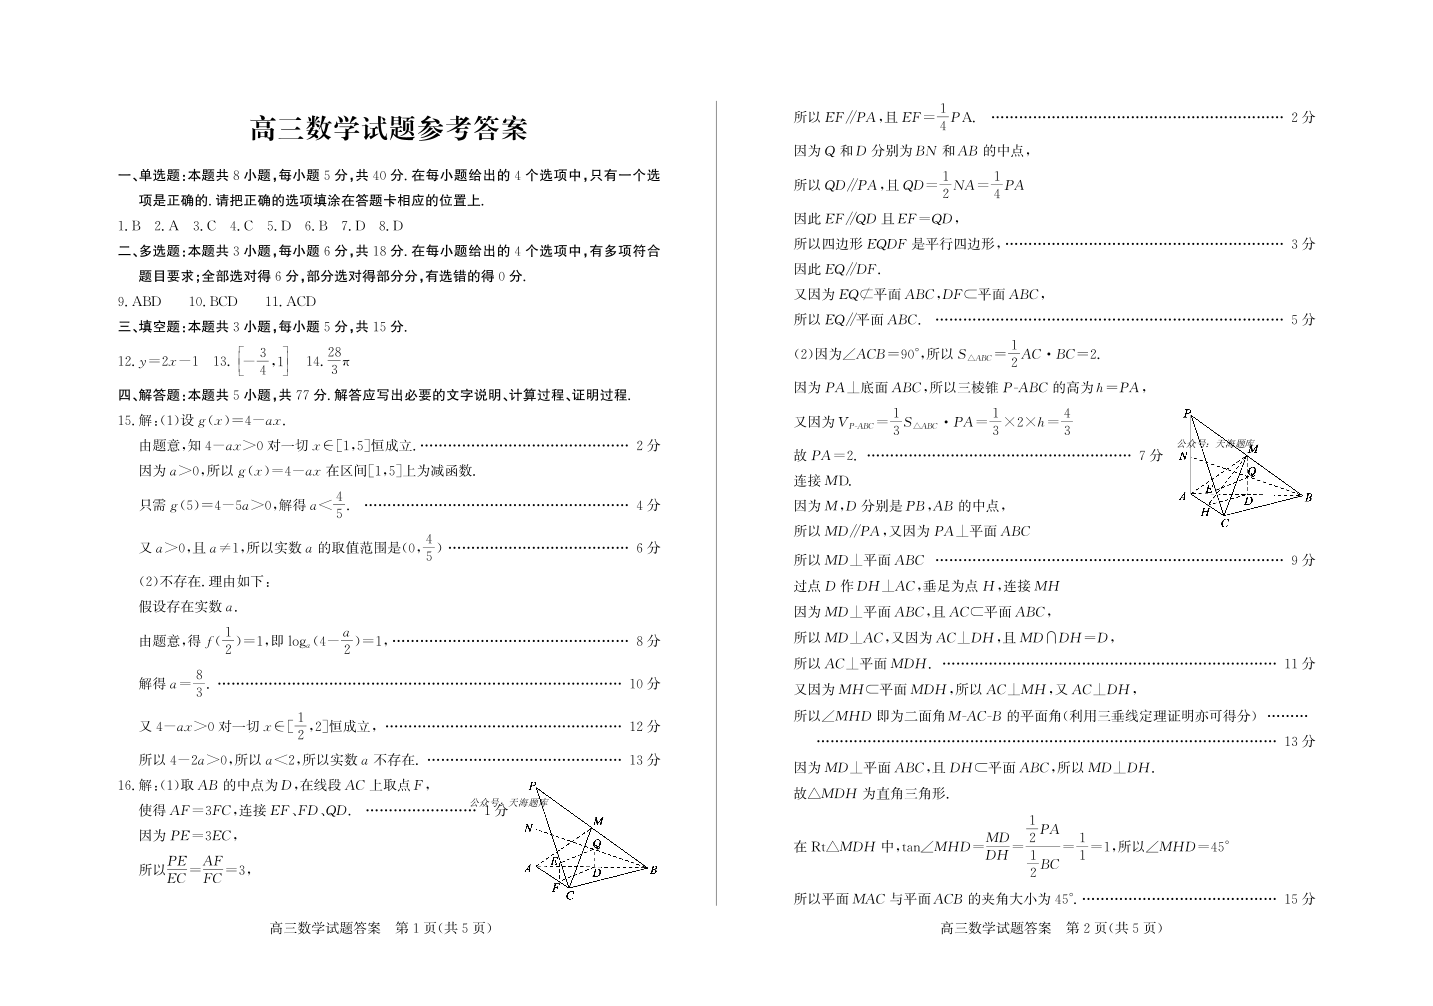 高三数学试题参考答案
一、单选题:本题共 8 小题,每小题 5 分,共 40 分.在每小题给出的 4 个选项中,只有一个选
项是正确的.请把正确的选项填涂在答题卡相应的位置上.
1.B 2.A 3.C 4.C 5.D 6.B 7.D 8.D
二、多选题:本题共 3 小题,每小题 6 分,共 18 分.在每小题给出的 4 个选项中,有多项符合
题目要求;全部选对得 6 分,部分选对得部分分,有选错的得 0 分.
9.ABD 10.BCD 11.ACD
三、填空题:本题共 3 小题,每小题 5 分,共 15 分.
12.y=2x-1 13.[-3/4,1] 14.28/3π
四、解答题:本题共 5 小题,共 77 分.解答应写出必要的文字说明、计算过程、证明过程.
15.解:(1)设 g(x)=4-ax.
由题意,知 4-ax>0 对一切 x∈[1,5]恒成立.………………………………………… 2 分
因为 a>0,所以 g(x)=4-ax 在区间[1,5]上为减函数.
只需 g(5)=4-5a>0,解得 a<4/5. ………………………………………… 4 分
又 a>0,且 a≠1,所以实数 a 的取值范围是(0,4/5) ………………………………… 6 分
(2)不存在.理由如下:
假设存在实数 a.
由题意,得 f(1/2)=1,即 logₐ(4-a/2)=1,………………………………………… 8 分
解得 a=8/3. ………………………………………………………… 10 分
又 4-ax>0 对一切 x∈[1/2,2]恒成立, ………………………………………… 12 分
所以 4-2a>0,所以 a<2,所以实数 a 不存在. ………………………………… 13 分
16.解:(1)取 AB 的中点为 D,在线段 AC 上取点 F,
使得 AF=3FC,连接 EF、FD、QD. …………………… 1 分
因为 PE=3EC,
所以PE/EC=AF/FC=3,
公众号:天海题库
P
M
N
Q
A
E
D
B
F
C
高三数学试题答案 第 1 页(共 5 页)
所以 EF∥PA,且 EF=1/4PA. ………………………………………………… 2 分
因为 Q 和 D 分别为 BN 和 AB 的中点,
所以 QD∥PA,且 QD=1/2NA=1/4PA
因此 EF∥QD 且 EF=QD,
所以四边形 EQDF 是平行四边形,………………………………………………… 3 分
因此 EQ∥DF.
又因为 EQ⊄平面 ABC,DF⊂平面 ABC,
所以 EQ∥平面 ABC. ………………………………………………………… 5 分
(2)因为∠ACB=90°,所以 S△ABC=1/2AC·BC=2.
因为 PA⊥底面 ABC,所以三棱锥 P-ABC 的高为 h=PA,
又因为 VP-ABC=1/3S△ABC·PA=1/3×2×h=4/3
故 PA=2. ………………………………………………… 7 分
连接 MD.
因为 M,D 分别是 PB,AB 的中点,
所以 MD∥PA,又因为 PA⊥平面 ABC
所以 MD⊥平面 ABC ………………………………………………………… 9 分
过点 D 作 DH⊥AC,垂足为点 H,连接 MH
因为 MD⊥平面 ABC,且 AC⊂平面 ABC,
所以 MD⊥AC,又因为 AC⊥DH,且 MD∩DH=D,
所以 AC⊥平面 MDH. ………………………………………………………… 11 分
又因为 MH⊂平面 MDH,所以 AC⊥MH,又 AC⊥DH,
所以∠MHD 即为二面角 M-AC-B 的平面角(利用三垂线定理证明亦可得分) ………
………………………………………………………………………… 13 分
因为 MD⊥平面 ABC,且 DH⊂平面 ABC,所以 MD⊥DH.
故△MDH 为直角三角形.
在 Rt△MDH 中,tan∠MHD=MD/DH=(1/2PA)/(1/2BC)=1/1=1,所以∠MHD=45°
所以平面 MAC 与平面 ACB 的夹角大小为 45°.………………………………… 15 分
P
公众号:天海题库
M
N
Q
A
E
D
B
H
C
高三数学试题答案 第 2 页(共 5 页)